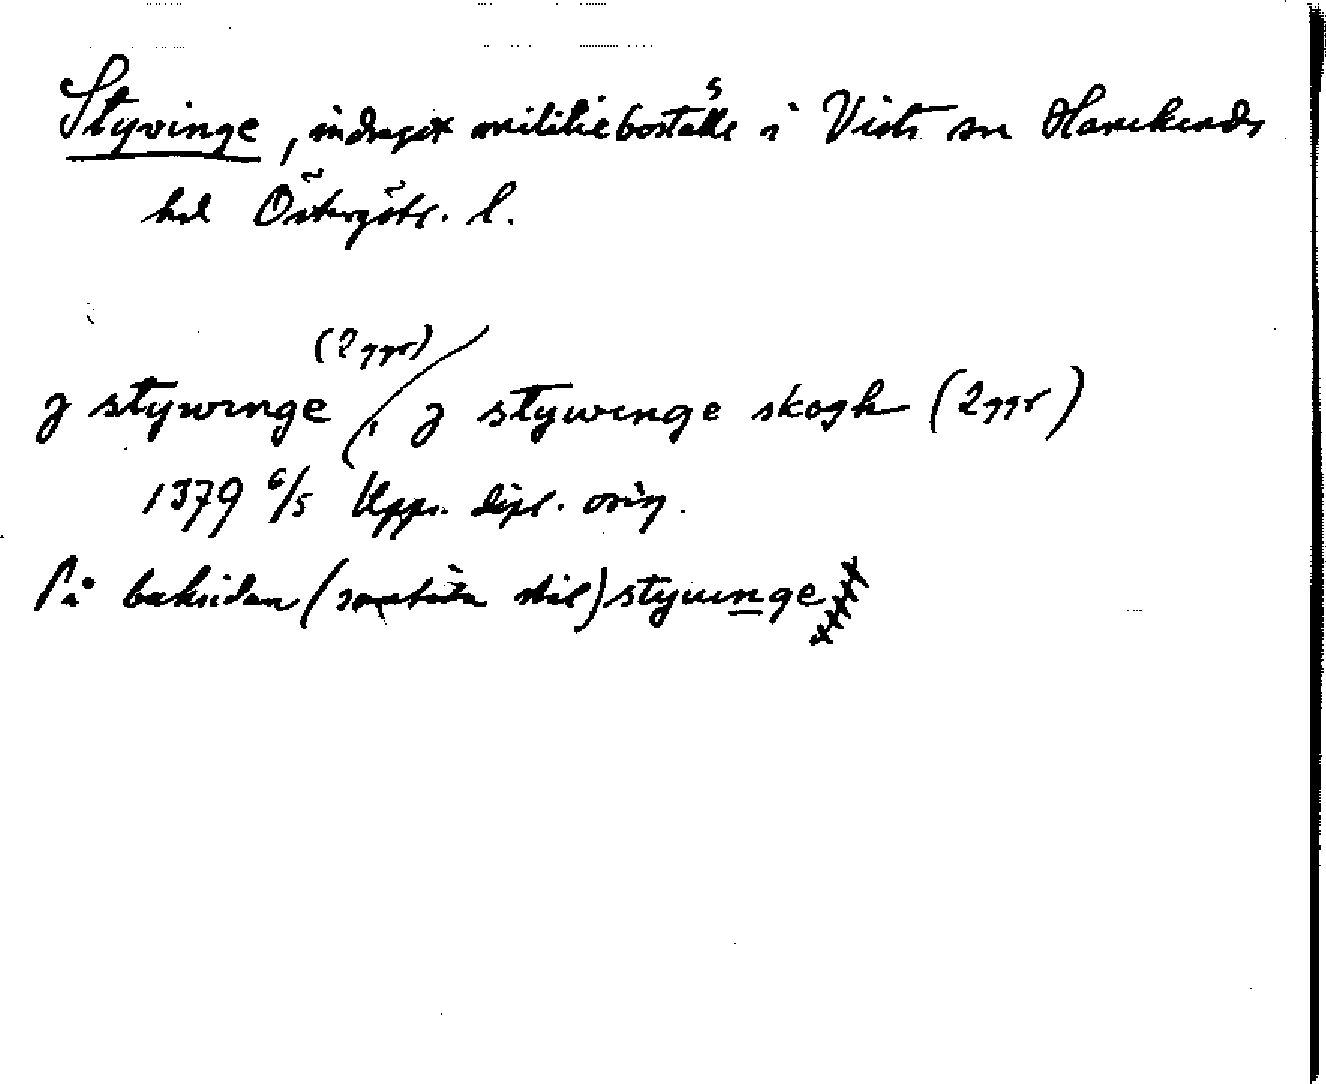 Styvinge, indraget militieboställe i Vists sn Hanekinds
hd Östergötl. l.
(2 ggr)
J stywinge, J stywinge skogh (2 ggr)
1379 6/5 Upps. dipl. orig.
På baksidan (samtida stil) stywinge